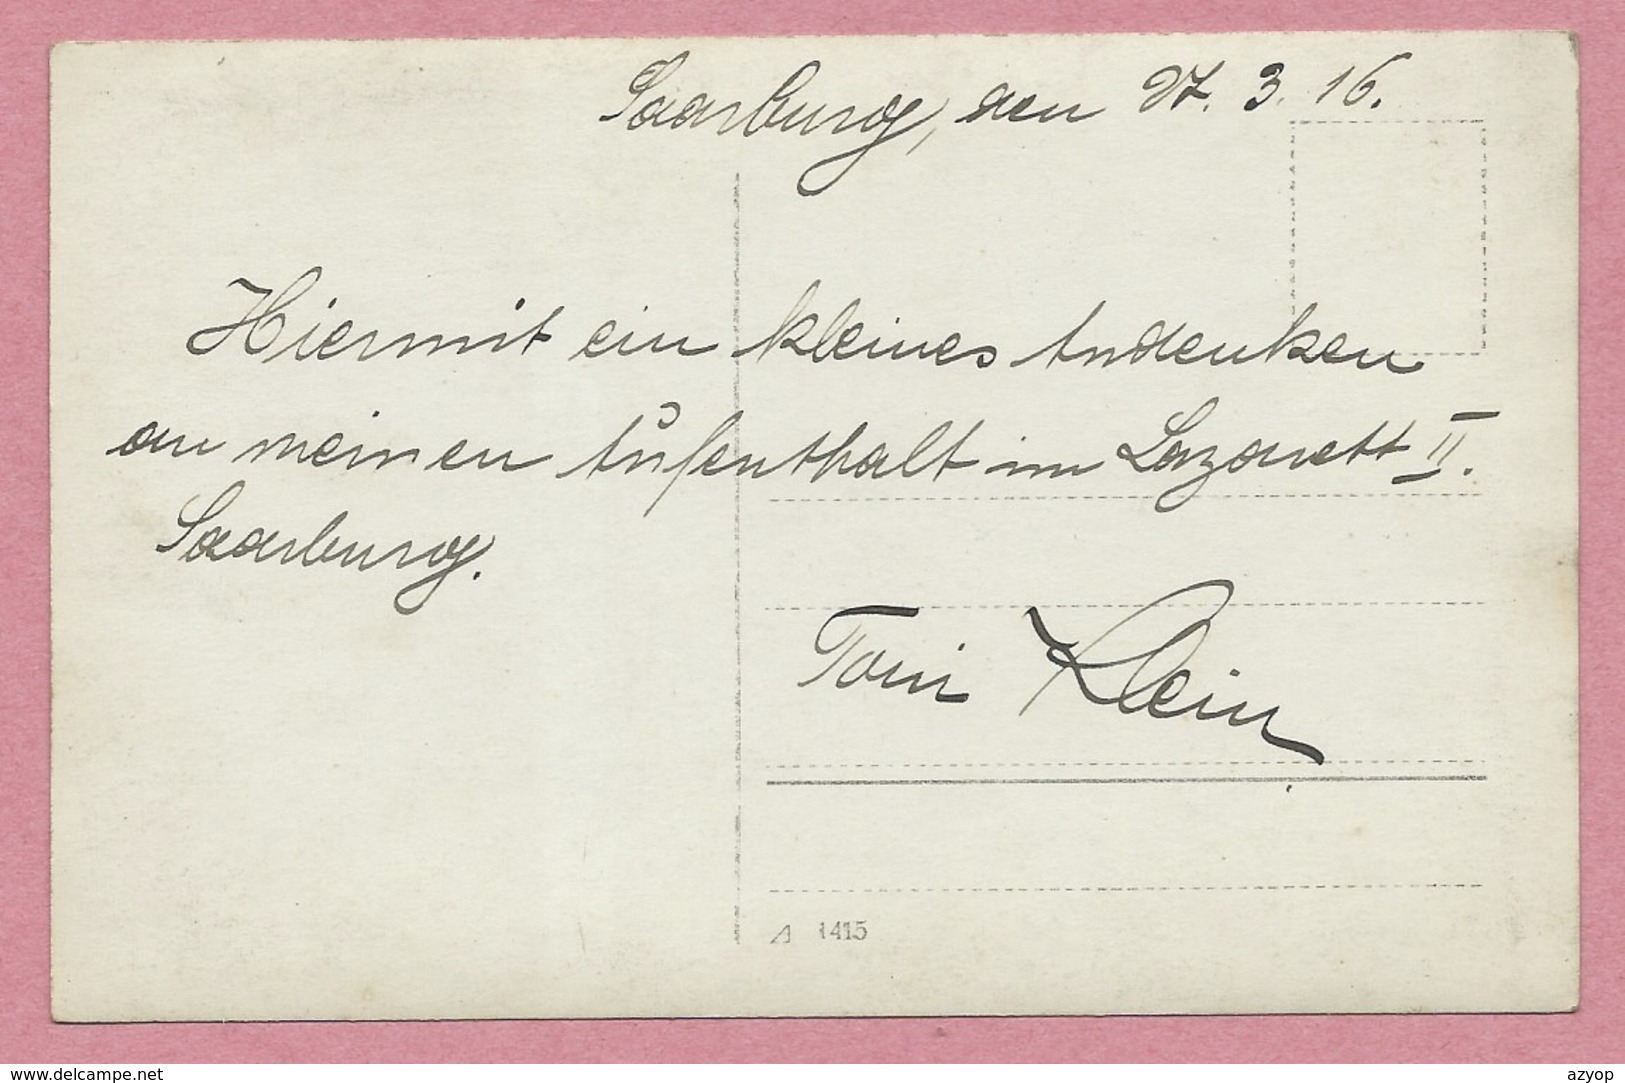 Saarburg, den 27. 3. 16.
Hiermit ein kleines Andenken
an meinen Aufenthalt im Lazarett II.
Saarburg.
Toni Klein
A 1415
www.delcampe.net
azyop